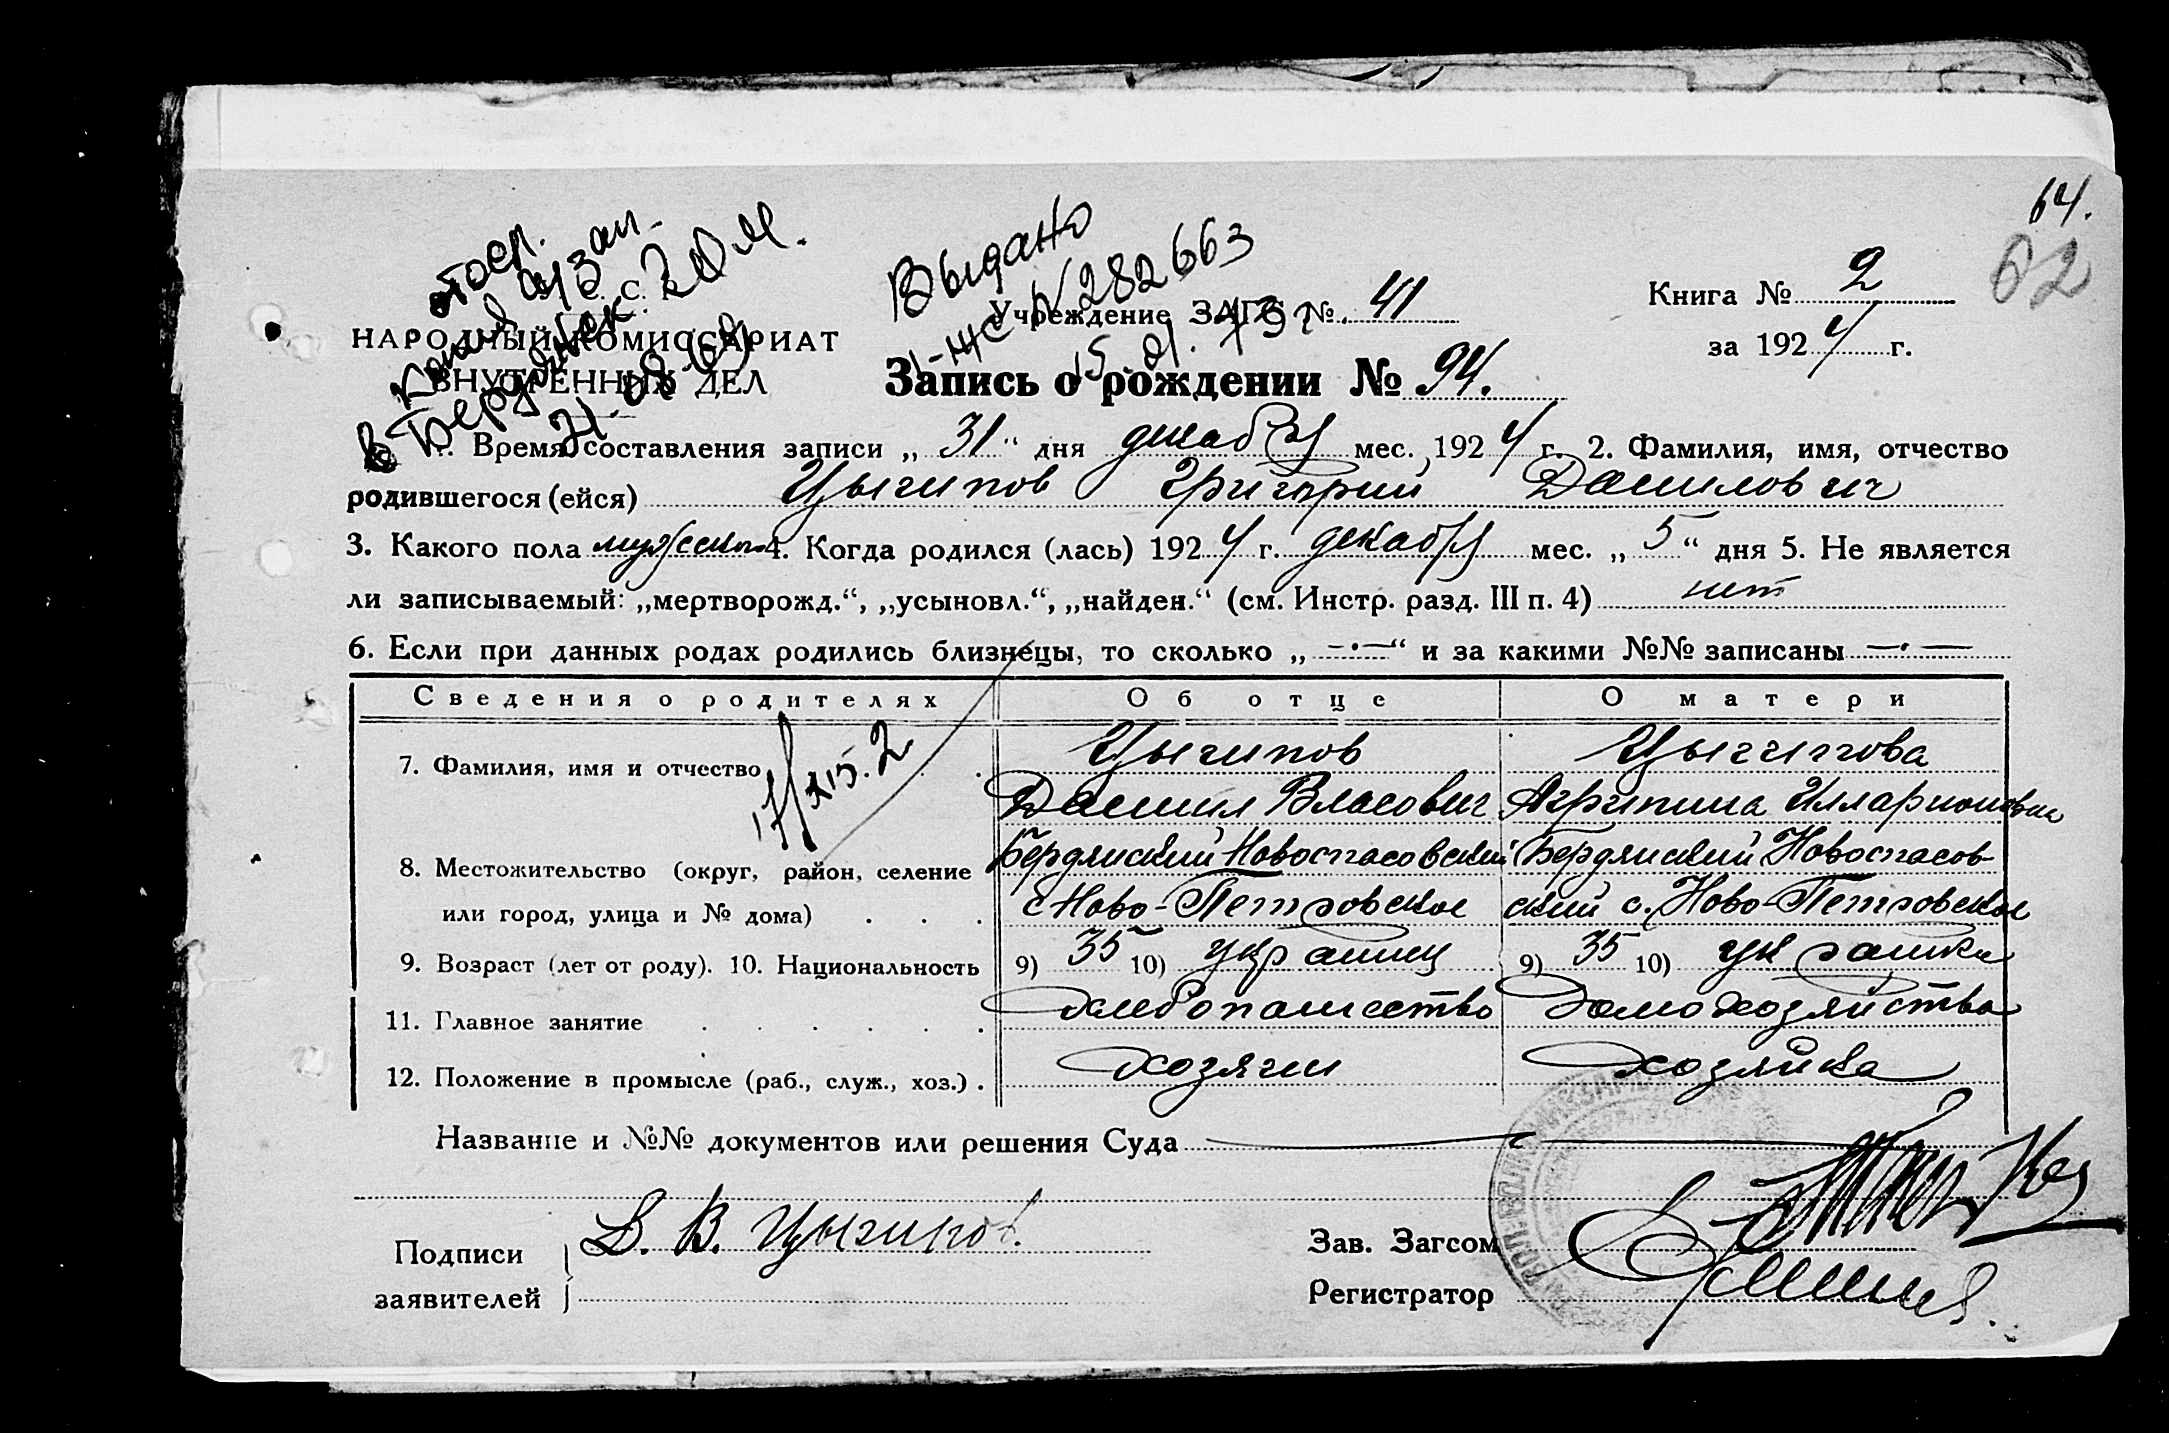 64.
62
отосл.
копия а/зап.
в Бердянск. ZОМ.
Выдано
I-ЖС № 282663
Учреждение ЗАГС №. 41
Книга № 2
НАРОДНЫЙ КОМИССАРИАТ
ВНУТРЕННИХ ДЕЛ
за 1924 г.
Запись о рождении № 94.
Время составления записи „31“ дня декабря мес. 1924 г. 2. Фамилия, имя, отчество
родившегося (ейся) Цыгипов Григорий Данилович
3. Какого пола мужского 4. Когда родился (лась) 1924 г. декабря мес. „5“ дня 5. Не является
ли записываемый: „мертворожд.“, „усыновл.“, „найден.“ (см. Инстр. разд. III п. 4) нет
6. Если при данных родах родились близнецы, то сколько „-·-“ и за какими №№ записаны -·-
Сведения о родителях Об отце О матери
7. Фамилия, имя и отчество Цыгипов Цыгипова
Даниил Власович Агрипина Илларионовна
8. Местожительство (округ, район, селение Бердянский Новоспасовский Бердянский Новоспасов-
или город, улица и № дома) с Ново-Петровское ский с. Ново-Петровское
9. Возраст (лет от роду). 10. Национальность 9) 35 10) украинец 9) 35 10) украинка
11. Главное занятие хлебопашество домохозяйство
12. Положение в промысле (раб., служ., хоз.) . хозяин хозяйка
Название и №№ документов или решения Суда
Подписи заявителей Д. В. Цыгипов.
Зав. Загсом
Регистратор